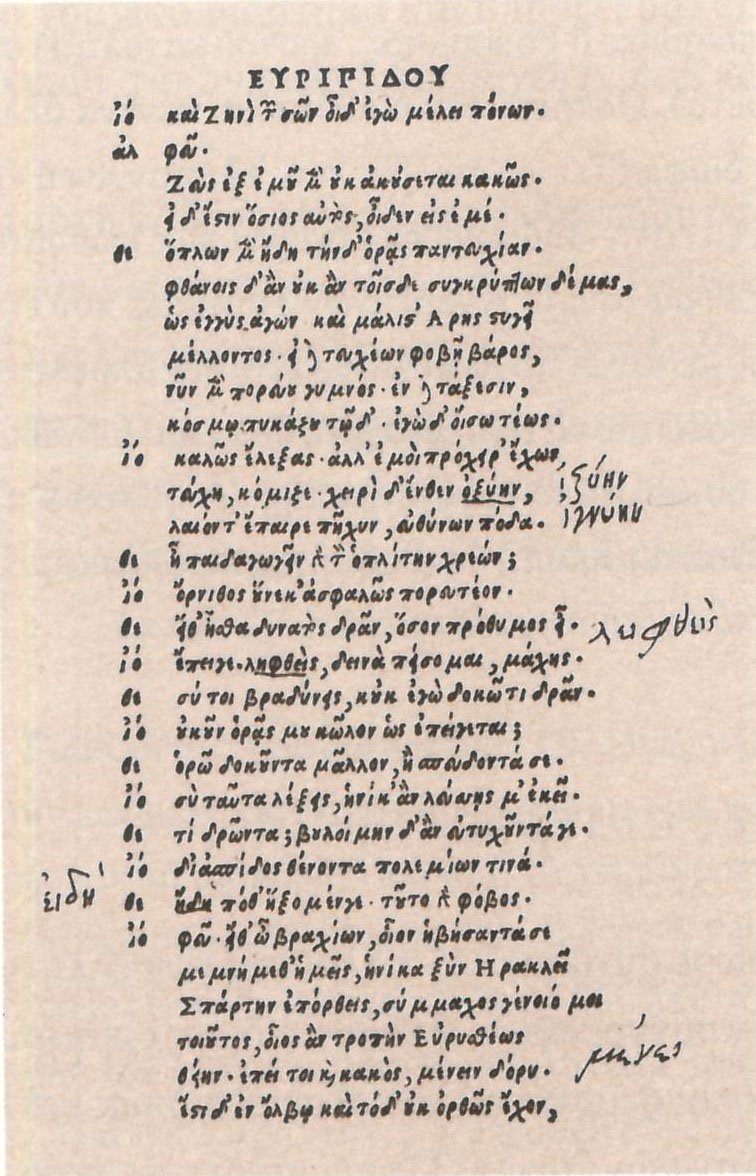 ΕΥΡΙΠΙΔΟΥ
ἰό καὶ Ζηνὶ τῶν σῶν οἶδ' ἐγὼ μέλει πόνων.
ἀλ φεῦ.
Ζεὺς ἐξ ἐμοῦ μὲν οὐκ ἀκούσεται κακῶς.
εἰ δ' ἔστιν ὅσιος αὐτὸς, οἶδεν εἰς ἐμέ.
θε ὅπλων μὲν ἤδη τήνδ' ὁρᾷς παντευχίαν.
φθάνοις δ' ἂν οὐκ ἂν τοῖσδε συγκρύπτων δέμας,
ὡς ἐγγὺς ἀγών καὶ μάλιστ' Αρης στυγεῖ
μέλλοντος. εἰ δὲ τευχέων φοβῇ βάρος,
νῦν μὲν πορεύου γυμνός. ἐν δὲ τάξεσιν,
κόσμῳ πυκάζου τῷδ'. ἐγὼ δ' οἴσω τέως.
ἰό καλῶς ἔλεξας. ἀλλ' ἐμοὶ πρόχειρ' ἔχων,
τεύχη, κόμιζε. χειρὶ δ' ἔνθεν ὀξύην, ἰξύην
λαιόντ' ἔπαιρε πῆχυν, εὐθύνων πόδα. ἰγνύην
θε ἦ παιδαγωγεῖν γὰρ τὸν ὁπλίτην χρεών;
ἰό ὄρνιθος οὕνεκ' ἀσφαλῶς πορευτέον.
θε εἴθ' ἦσθα δυνατὸς δρᾶν, ὅσον πρόθυμος εἶ. λειφθεὶς
ἰό ἔπειγε. ληφθεὶς, δεινὰ πείσομαι, μάχης.
θε σύ τοι βραδύνεις, κοὐκ ἐγὼ δοκῶ τι δρᾶν.
ἰό οὐκοῦν ὁρᾷς μου κῶλον ὡς ἐπείγεται;
θε ὁρῶ δοκοῦντα μᾶλλον, ἢ σπεύδοντά σε.
ἰό σὺ ταῦτα λέξεις, ἡνίκ' ἂν λεύσῃς μ' ἐκεῖ.
θε τί δρῶντα; βουλοίμην δ' ἂν εὐτυχοῦντά γε.
ἰό δι' ἀσπίδος θένοντα πολεμίων τινά.
εἰ δή θε ἤδη πόθ' ἥξομέν γε. τοῦτο γὰρ φόβος.
ἰό φεῦ. εἴθ' ὦ βραχίων, οἷον ἡβήσαντά σε
μεμνήμεθ' ἡμεῖς, ἡνίκα ξὺν Ηρακλεῖ
Σπάρτην ἐπόρθεις, σύμμαχος γένοιό μοι
τοιοῦτος, οἷος ἂν τροπὴν Εὐρυσθέως
θείην. ἐπεί τοι καὶ κακὸς, μένειν δόρυ.
ἔστι δ' ἐν ὄλβῳ καὶ τόδ' οὐκ ὀρθῶς ἔχον,